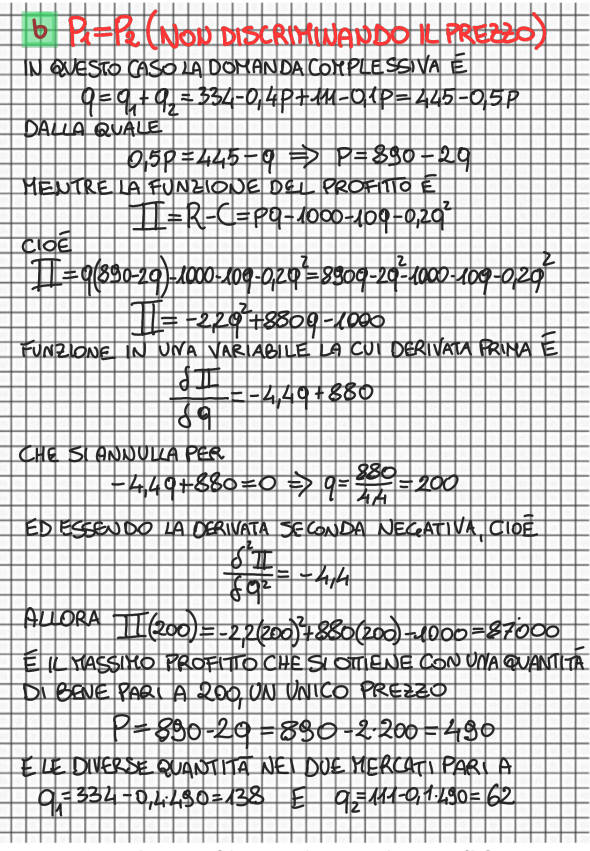 b P₁=P₂ (NON DISCRIMINANDO IL PREZZO)
IN QUESTO CASO LA DOMANDA COMPLESSIVA È
q=q₁+q₂=334-0,4P+111-0,1P=445-0,5P
DALLA QUALE
0,5P=445-q ⇒ P=890-2q
MENTRE LA FUNZIONE DEL PROFITTO È
Π=R-C=Pq-1000-10q-0,2q²
CIOÈ
Π=q(890-2q)-1000-10q-0,2q²=890q-2q²-1000-10q-0,2q²
Π=-2,2q²+880q-1000
FUNZIONE IN UNA VARIABILE LA CUI DERIVATA PRIMA È
δΠ/δq=-4,4q+880
CHE SI ANNULLA PER
-4,4q+880=0 ⇒ q=880/4,4=200
ED ESSENDO LA DERIVATA SECONDA NEGATIVA, CIOÈ
δ²Π/δq²=-4,4
ALLORA Π(200)=-2,2(200)²+880(200)-1000=87'000
È IL MASSIMO PROFITTO CHE SI OTTIENE CON UNA QUANTITÀ
DI BENE PARI A 200, UN UNICO PREZZO
P=890-2q=890-2·200=490
E LE DIVERSE QUANTITÀ NEI DUE MERCATI PARI A
q₁=334-0,4·490=138 E q₂=111-0,1·490=62